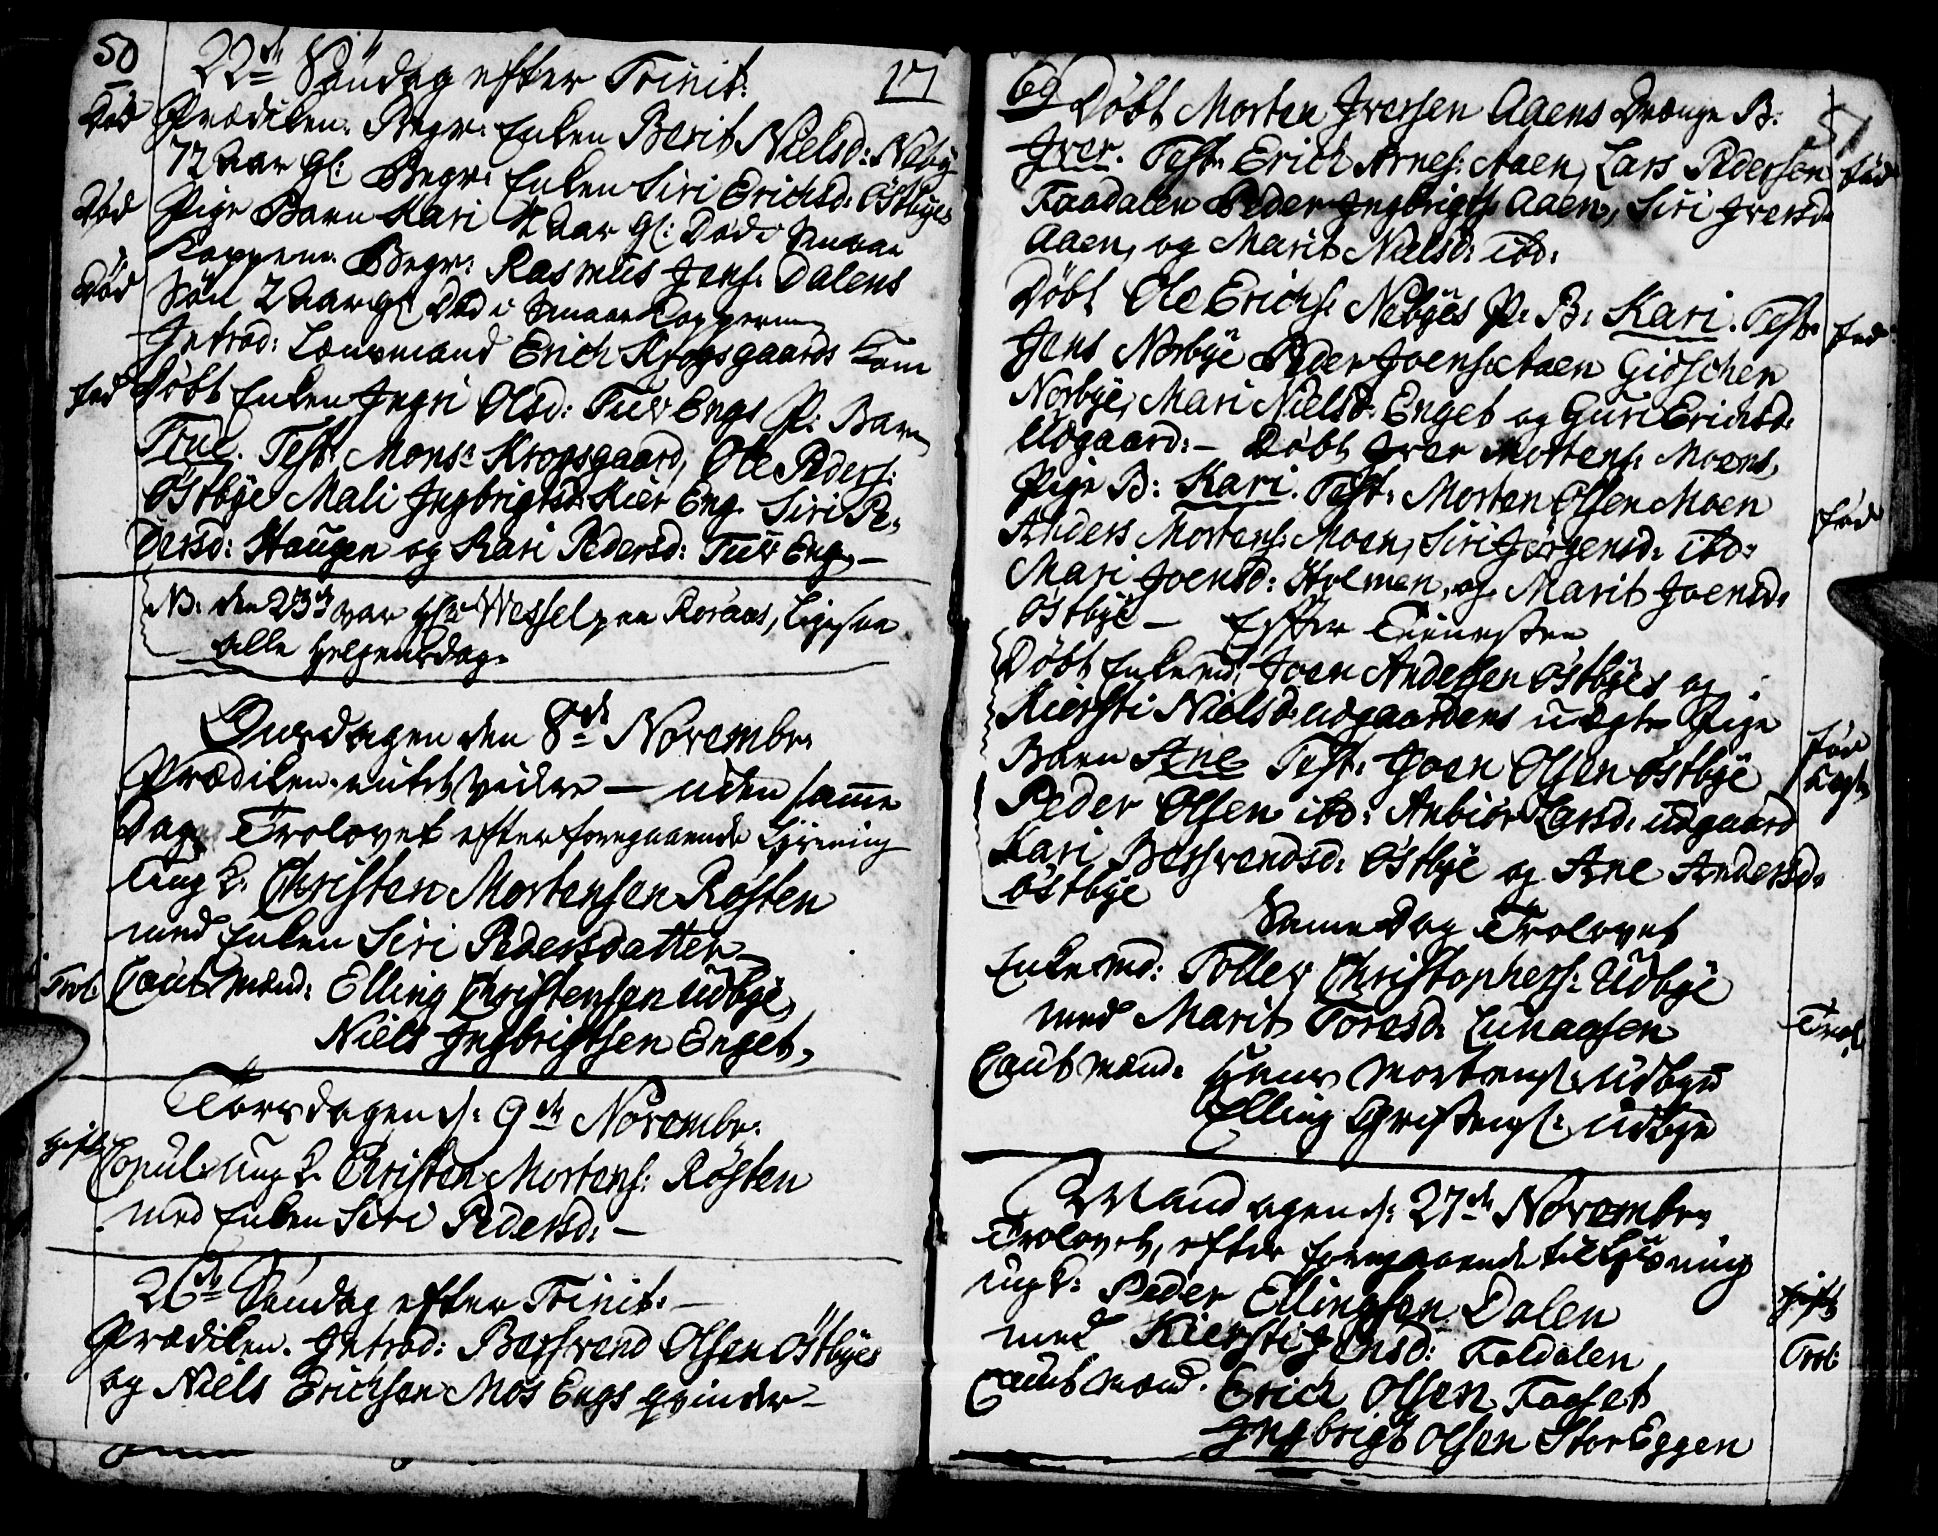 50
22de Søndag efter Trinit:
17
Død Prædiken. Begr: Enken Berit Nielsd: Nebÿ
72 Aar gl: Begr: Enken Siri Erichsd: Østbÿes
Død Pige Barn Kari 4 Aar gl: Død i Smaae
Koppene. Begr: Rasmus Jens: Dalens
Død Søn 2 Aar gl Død i Smaae Kopperne
Introd: Lensmand Erich Krogsgaards Kone
Fød Døbt Enken Ingri Olsd: Tuv Engs P: Barn
Test: Mons: Krogsgaard, Ole Peders:
Østbÿe Mali Ingbrigtsd: Kier Eng. Siri Pe-
dersd: Haugen og Kari Pedersd: Tuv Eng. —
NB: den 23de var Hr Wessel paa Røraas, Ligesaa
alle Helgensdag.
Onsdagen den 8de Novembr:
Prædiken — uden samme
Dag Trolovet efter foregaaende Lysning
Ung K. Christen Mortensen Røsten
med Enken Siri Pedersdatter —
Trol: Cautmænd: Elling Christensen Udbÿe,
Niels Ingbrigtsen Enget,
Torsdagen d: 9de Novembr:
Gift Copul: Ung K. Christen Mortens: Røsten
med Enken Siri Pedersd: —
26de Søndag efter Trinit: —
Prædiken. Introd: Berhrend Olsen Østbÿes
og Niels Erichsen Mos Engs Qvinder —
69 Døbt Morten Iversen Aaens Drænge B:
51
Iver. Test: Erich Arnes: Aaen, Lars Pedersen Fød
Faadalen Peder Ingbrigts: Aaen, Siri Iversd:
Aaen, og Marit Nielsd: ibd:
Døbt Ole Erichs: Nebÿes P: B: Kari. Test: Fød:
Jens Norbÿe Peder Joens: Aaen Gidschen
Norbÿe, Mari Nielsd: Enget og Guri Erichsd:
Udgaard: — Døbt Iver Mortens: Moens,
Pige B: Kari. Test: Morten Olsen Moen Fød
Anders Mortens: Moen, Siri Jørgensd: ibd:
Mari Joensd: Holmen, og Marit Joensd:
Østbÿe — Efter Tienesten
Døbt Enkemd: Joen Andersen Østbÿes og
Kiersti Nielsd: Udgaardens uægte Pige Fød
Barn Ane Test: Joen Olsen Østbÿe uægt
Peder Olsen ibd: Anbior Larsd: Udgaard
Kari Berhrendsd: Østbÿe og Ane Andersd:
Østbÿe
Samme Dag Trolovet
Enkemd: Tollev Christophers: Udbÿe
med Marit Toresd: Lunaasen Trol:
Cautmænd: Hans Mortens: Udbÿe
Elling Christens: Udbÿe
Mandagen d: 27de Novembr:
Trolovet, efter foregaaende Lysning
ung K: Peder Ellingsen Dalen
med Kiersti Jensd: Foldalen Trol:
Cautmænd: Erich Olsen Faaset
Ingbrigt Olsen Stor Eggen